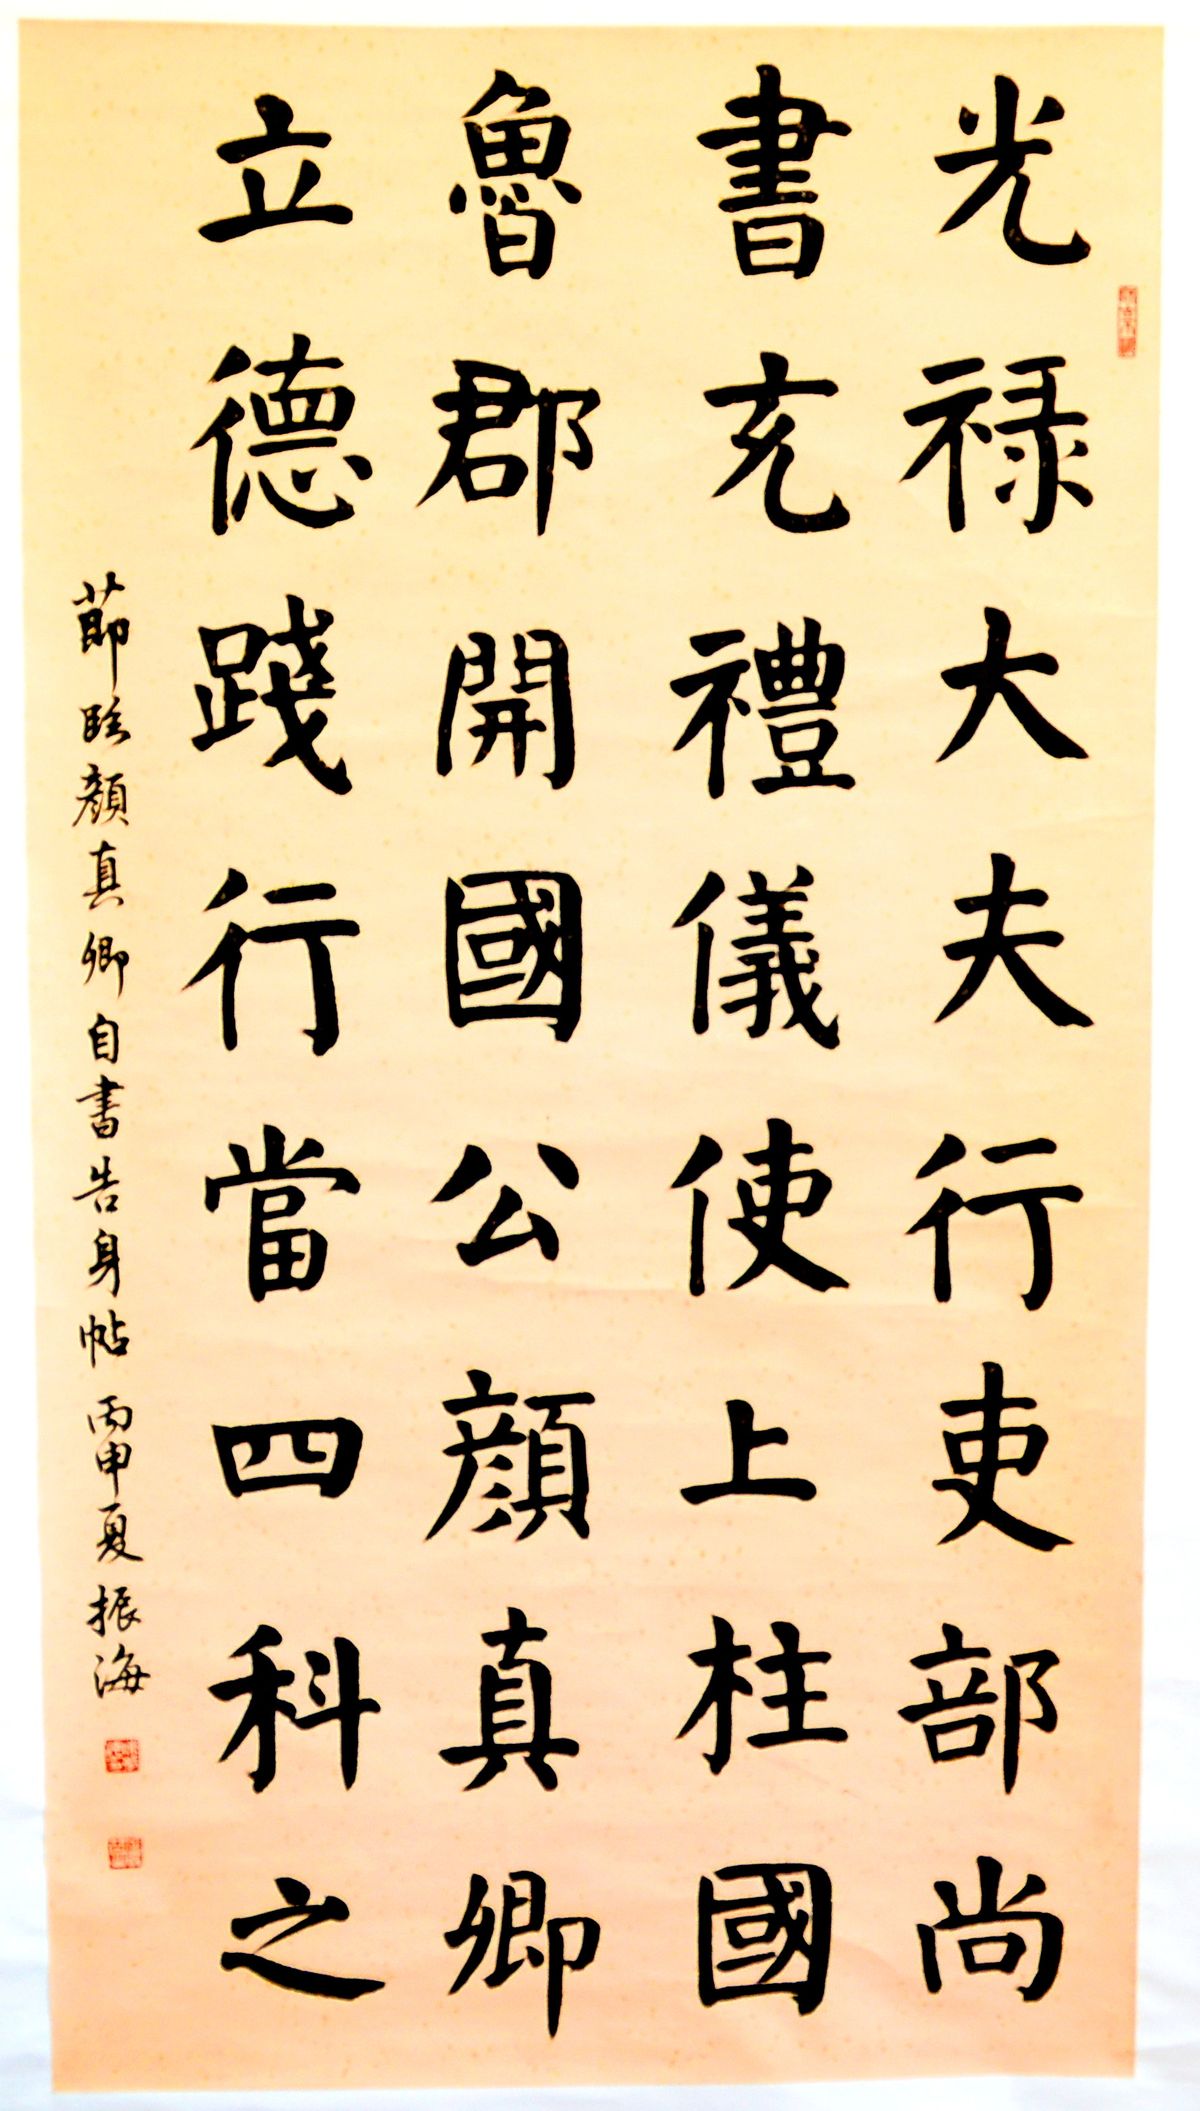 光禄大夫行吏部尚
書充禮儀使上柱國
魯郡開國公顔真卿
立德踐行當四科之
節臨顔真卿自書告身帖丙申夏振海